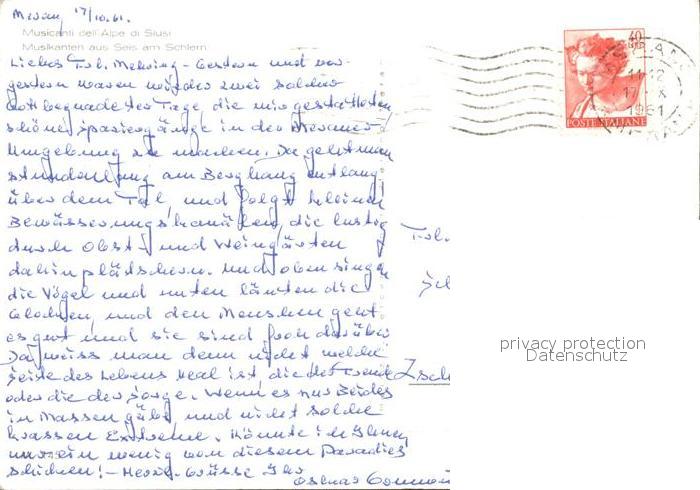 Meran, 17/10.61.
Musicanti dell'Alpe di Siusi
Musikanten aus Seis am Schlern
Liebes Frl. Mehring - Gestern und vor-
gestern waren wieder zwei solche
Gottbegnadeter Tage, die mir gestatteten
schöne Spaziergänge in der Meraner
Umgebung zu machen. Da geht man
stundenlang am Berghang entlang
über dem Tal, und folgt kleinen
Bewässerungskanälen, die lustig
durch Obst- und Weingärten
dahinplätschern. Und oben singen
die Vögel und unten läuten die
Glocken, und den Menschen geht
es gut und sie sind froh darüber.
Da weiss man dann nicht welche
Seite des Lebens real ist, die der Freude
oder die der Sorge. Wenn es nur Beides
in Massen gäbe, und nicht solche
krassen Extreme. Könnte ich Ihnen
nur ein wenig von diesem Paradies
schicken! - Herzl. Grüsse Ihr
Oskar
Frl.
40
POSTE ITALIANE
11-12
17 X
1961
privacy protection
Datenschutz